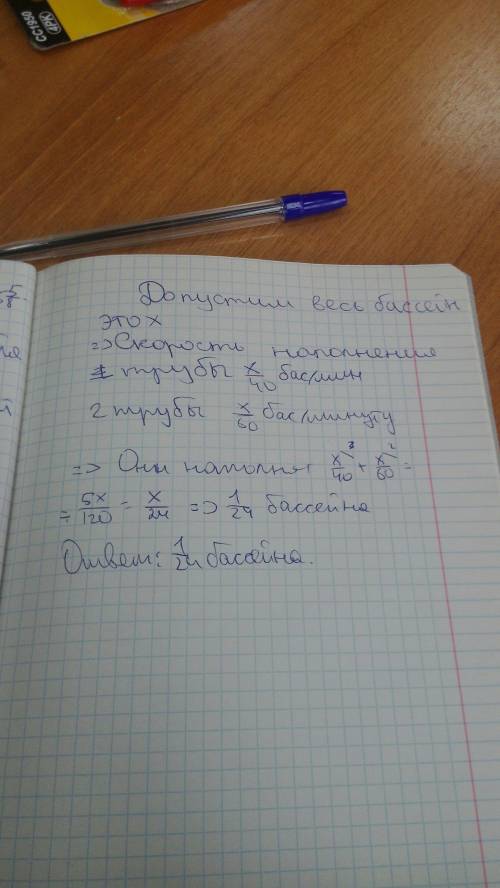 CC1950
4PK
5/8.
Допустим весь бассейн
это x
=> Скорость наполнения
1 трубы x/40 бас/мин
2 трубы x/60 бас/минуту
=> Они наполнят x/40 ³ + x/60 ² =
= 5x/120 = x/24 => 1/24 бассейна
Ответ: 1/24 бассейна.